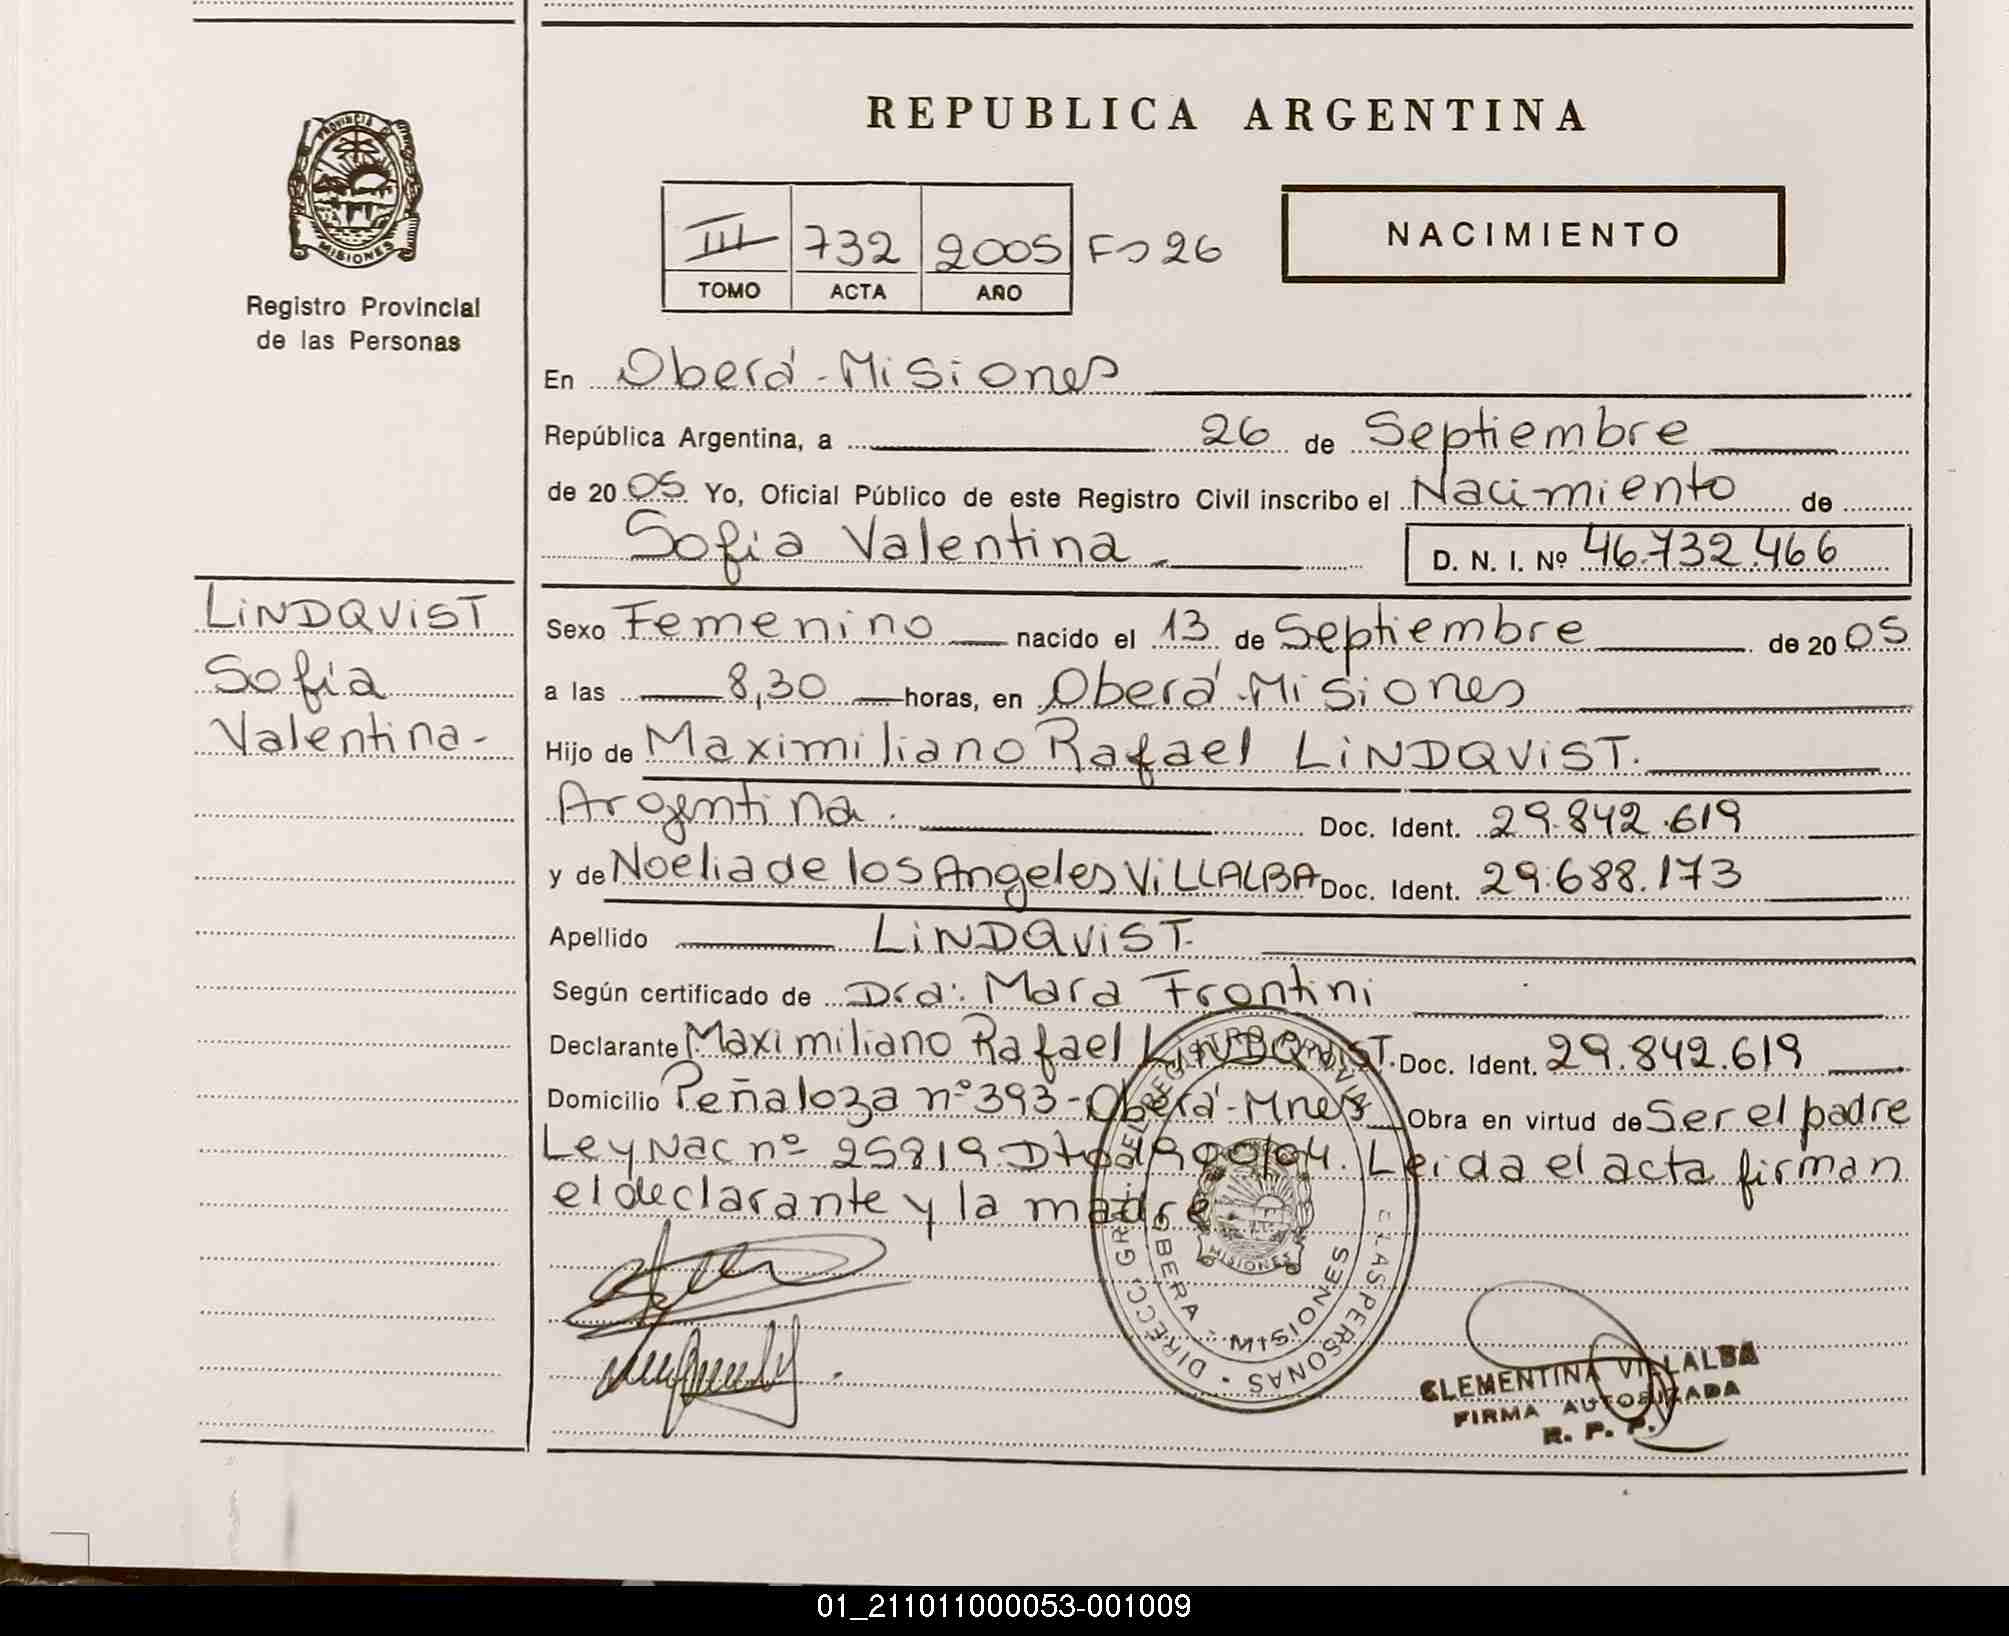 REPUBLICA ARGENTINA
PROVINCIA D
MISIONES
Registro Provincial
de las Personas
III 732 2005 Fº 26
TOMO ACTA AÑO
NACIMIENTO
En Oberá - Misiones
República Argentina, a 26 de Septiembre
de 20 05 Yo, Oficial Público de este Registro Civil inscribo el Nacimiento de
Sofía Valentina D. N. I. Nº 46.732.466
LiNDQViST
Sofía
Valentina-
Sexo Femenino nacido el 13 de Septiembre de 20 05
a las 8,30 horas, en Oberá-Misiones
Hijo de Maximiliano Rafael LiNDQViST.
Argentina. Doc. Ident. 29.842.619
y de Noelia de los Angeles ViLLALBA Doc. Ident. 29.688.173
Apellido LiNDQViST.
Según certificado de Dra: Mara Frontini
Declarante Maximiliano Rafael LiNDQViST. Doc. Ident. 29.842.619
Domicilio Peñaloza nº 393-Oberá-Mnes Obra en virtud de Ser el padre
Ley Nac nº 25819 Dto 1900/04. Leida el acta firman
el declarante y la madre.
DIRECC. GRL. DEL REGISTRO PROVINCIAL DE LAS PERSONAS
OBERA - MISIONES
MISIONES
CLEMENTINA VILLALBA
FIRMA AUTORIZADA
R. P. P.
01_211011000053-001009